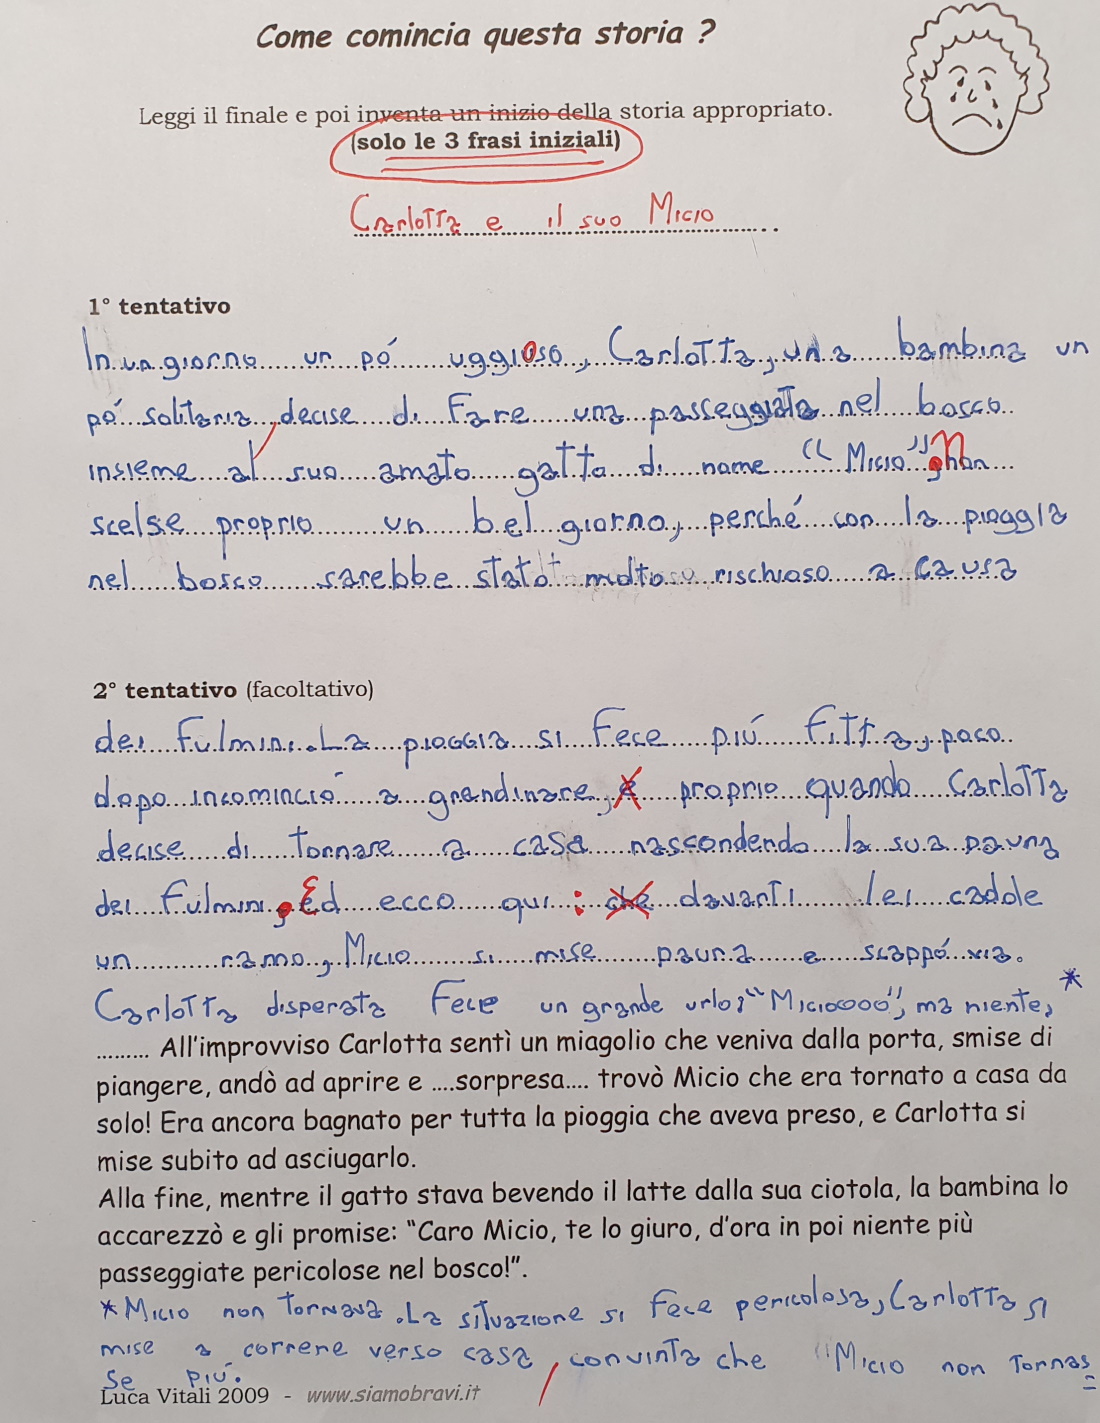 Come comincia questa storia ?
Leggi il finale e poi inventa un inizio della storia appropriato.
(solo le 3 frasi iniziali)
Carlotta e il suo Micio
1° tentativo
In un giorno un pó uggioso, Carlotta, una bambina un
pó solitaria, decise di fare una passeggiata nel bosco
insieme al suo amato gatto di nome "Micio", non
scelse proprio un bel giorno, perché con la pioggia
nel bosco sarebbe stato molto rischioso a causa
2° tentativo (facoltativo)
dei fulmini. La pioggia si fece piú fitta, poco
dopo incominció a grandinare, e proprio quando Carlotta
decise di tornare a casa nascondendo la sua paura
dei fulmini, Ed ecco qui : che davanti lei cadde
un ramo, Micio si mise paura e scappó via.
Carlotta disperata fece un grande urlo: "Miciooooo", ma niente, *
......... All'improvviso Carlotta sentì un miagolio che veniva dalla porta, smise di
piangere, andò ad aprire e ....sorpresa.... trovò Micio che era tornato a casa da
solo! Era ancora bagnato per tutta la pioggia che aveva preso, e Carlotta si
mise subito ad asciugarlo.
Alla fine, mentre il gatto stava bevendo il latte dalla sua ciotola, la bambina lo
accarezzò e gli promise: "Caro Micio, te lo giuro, d'ora in poi niente più
passeggiate pericolose nel bosco!".
* Micio non tornava. La situazione si fece pericolosa, Carlotta si
mise a correre verso casa, convinta che "Micio non tornas=
se piú.
Luca Vitali 2009 - www.siamobravi.it